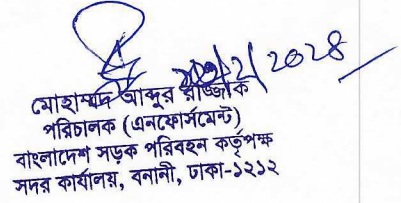 মোহাম্মদ আব্দুর রাজ্জাক
পরিচালক (এনফোর্সমেন্ট)
বাংলাদেশ সড়ক পরিবহন কর্তৃপক্ষ
সদর কার্যালয়, বনানী, ঢাকা-১২১২